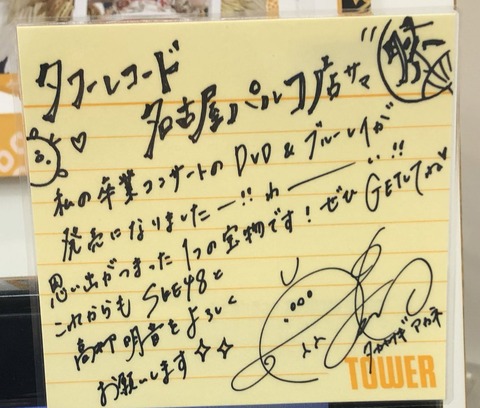 タワーレコード
名古屋パルコ店サマ
私の卒業コンサートのDVD&ブルーレイが
発売になりましたー!!わーーい!!
思い出がつまった1つの宝物です!ぜひGETしてね♡
これからもSKE48と
高柳明音をよろしく
お願いします☆☆
タカヤナギ アカネ
TOWER